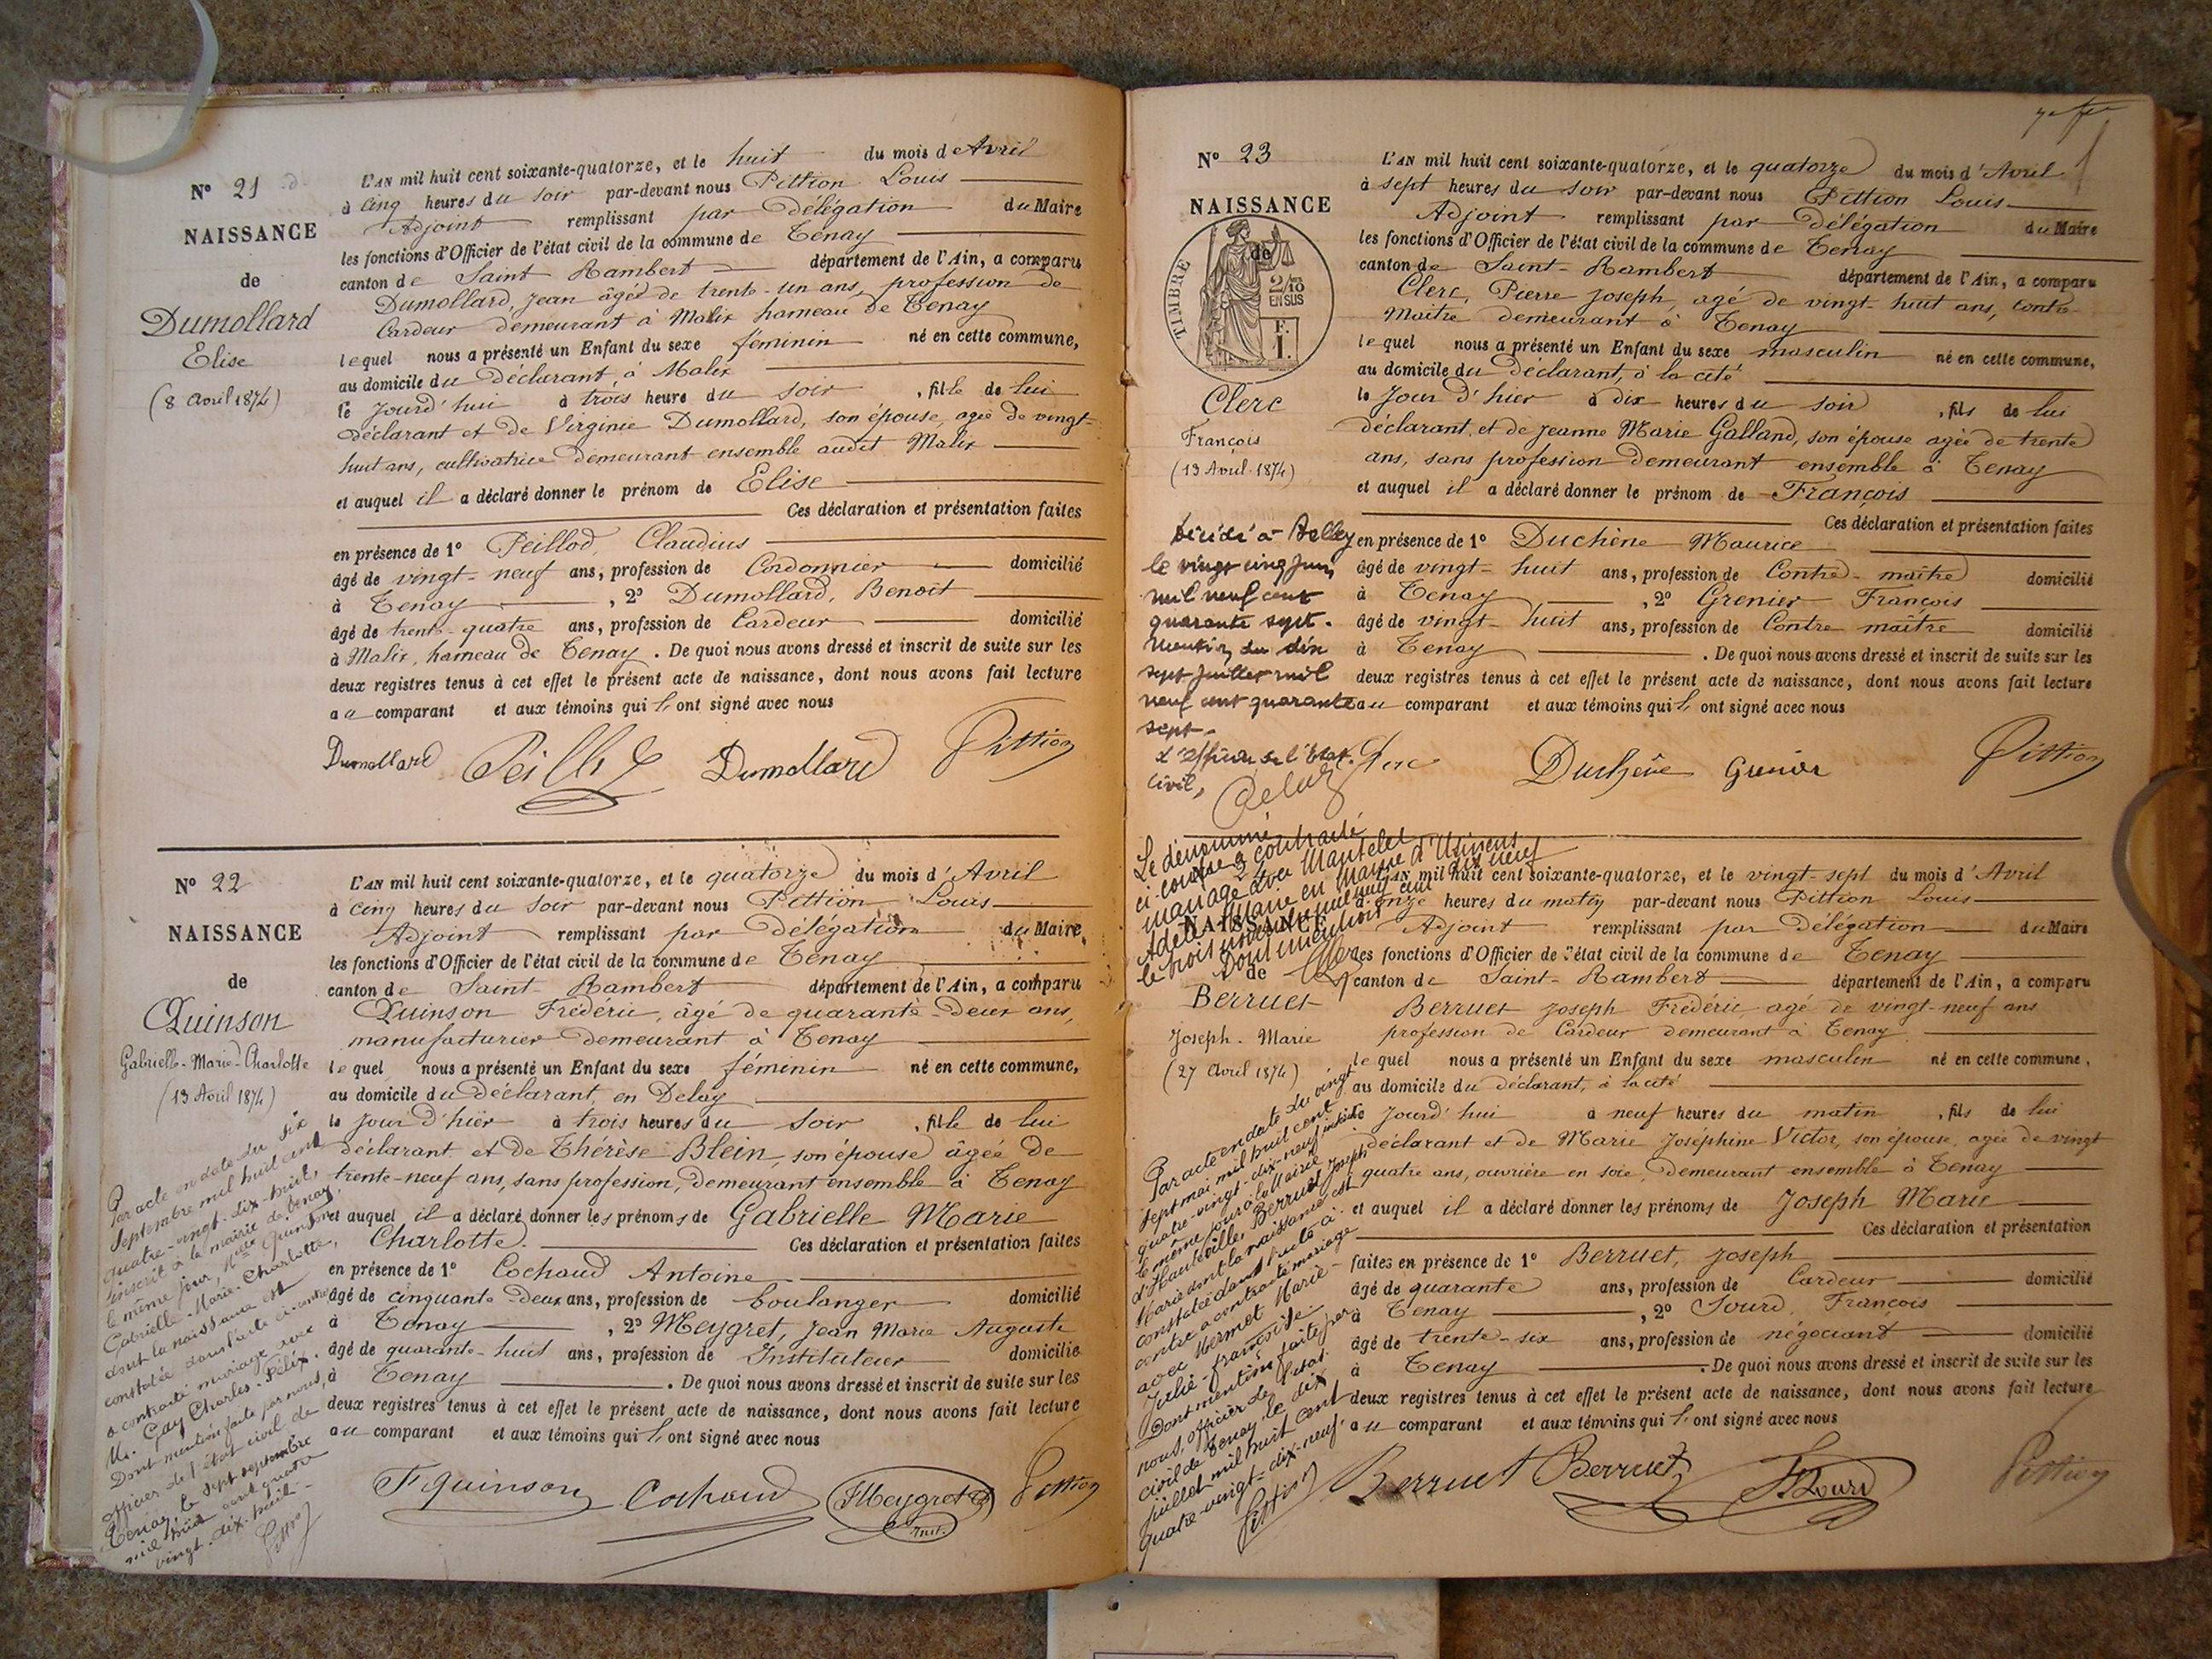 N° 21
NAISSANCE
de
Dumollard
Elise
(8 Avril 1874)
L'AN mil huit cent soixante-quatorze, et le huit du mois d'Avril
à cinq heures du soir par-devant nous Pittion Louis
Adjoint remplissant par délégation du Maire
les fonctions d'Officier de l'état civil de la commune de Tenay
canton de Saint Rambert département de l'Ain, a comparu
Dumollard, Jean âgé de trente-un ans, profession de
Cardeur demeurant à Malix hameau de Tenay
lequel nous a présenté un Enfant du sexe féminin né en cette commune,
au domicile du Déclarant, à Malix
le jourd'hui à trois heure du soir, fille de lui
déclarant et de Virginie Dumollard, son épouse, agée de vingt-
huit ans, cultivatrice demeurant ensemble audit Malix
et auquel il a déclaré donner le prénom de Elise
Ces déclaration et présentation faites
en présence de 1° Peillod, Claudius
âgé de vingt-neuf ans, profession de Cordonnier domicilié
à Tenay, 2° Dumollard, Benoit
âgé de trente-quatre ans, profession de Cardeur domicilié
à Malix, hameau de Tenay. De quoi nous avons dressé et inscrit de suite sur les
deux registres tenus à cet effet le présent acte de naissance, dont nous avons fait lecture
au comparant et aux témoins qui l'ont signé avec nous
Dumollard Dumollard Pittion
N° 22
NAISSANCE
de
Quinson
Gabrielle-Marie-Charlotte
(13 Avril 1874)
L'AN mil huit cent soixante-quatorze, et le quatorze du mois d'Avril
à cinq heures du soir par-devant nous Pittion Louis
Adjoint remplissant par délégation du Maire
les fonctions d'Officier de l'état civil de la commune de Tenay
canton de Saint Rambert département de l'Ain, a comparu
Quinson Frédéric, âgé de quarante-deux ans,
manufacturier demeurant à Tenay
lequel nous a présenté un Enfant du sexe féminin né en cette commune,
au domicile du déclarant, en Delay
le jour d'hier à trois heures du soir, fille de lui
déclarant et de Thérèse Blein, son épouse âgée de
trente-neuf ans, sans profession, demeurant ensemble à Tenay
et auquel il a déclaré donner les prénoms de Gabrielle Marie
Charlotte. Ces déclaration et présentation faites
en présence de 1° Cochaud Antoine
âgé de cinquante-deux ans, profession de boulanger domicilié
à Tenay, 2° Meygret, Jean Marie Auguste
âgé de quarante-huit ans, profession de Instituteur domicilié
à Tenay. De quoi nous avons dressé et inscrit de suite sur les
deux registres tenus à cet effet le présent acte de naissance, dont nous avons fait lecture
au comparant et aux témoins qui l'ont signé avec nous
F Quinson Cochaud Meygret Inst. Pittion
Par acte en date du six
septembre mil huit cent
quatre-vingt-dix-huit,
inscrit à la mairie de Tenay,
le même jour, Melle Quinson,
Gabrielle-Marie-Charlotte,
dont la naissance est
constatée dans l'acte ci-contre
a contracté mariage avec
M. Gay Charles-Félix.
Dont mention faite par nous,
officier de l'état civil de
Tenay, le sept septembre
mil huit cent quatre
vingt-dix-huit-
Pittion
N° 23
NAISSANCE
de
TIMBRE
2/10
EN SUS
F.
I.
Clerc
François
(13 Avril 1874)
L'AN mil huit cent soixante-quatorze, et le quatorze du mois d'Avril
à sept heures du soir par-devant nous Pittion Louis
Adjoint remplissant par délégation du Maire
les fonctions d'Officier de l'état civil de la commune de Tenay
canton de Saint-Rambert département de l'Ain, a comparu
Clerc, Pierre Joseph, agé de vingt-huit ans, contre-
maître demeurant à Tenay
lequel nous a présenté un Enfant du sexe masculin né en cette commune,
au domicile du déclarant, à la cité
le jour d'hier à dix heures du soir, fils de lui
déclarant et de Jeanne Marie Galland, son épouse agée de trente
ans, sans profession demeurant ensemble à Tenay
et auquel il a déclaré donner le prénom de François
Ces déclaration et présentation faites
en présence de 1° Duchène Maurice
âgé de vingt-huit ans, profession de Contre-maître domicilié
à Tenay, 2° Grenier François
âgé de vingt-huit ans, profession de Contre maître domicilié
à Tenay. De quoi nous avons dressé et inscrit de suite sur les
deux registres tenus à cet effet le présent acte de naissance, dont nous avons fait lecture
au comparant et aux témoins qui l'ont signé avec nous
Clerc Duchène Grenier Pittion
Décédé à Belley
le vingt cinq juin
mil neuf cent
quarante sept.
Mention du dix
sept juillet mil
neuf cent quarante
sept-
L'officier de l'état
civil,
Le dénommé
ci-contre a contracté
mariage avec Mantelet
Adèle Marie en Mairie d'Usinens
le trois mil neuf cent dix neuf
Dont mention
NAISSANCE
de
Berruet
Joseph-Marie
(27 Avril 1874)
L'AN mil huit cent soixante-quatorze, et le vingt-sept du mois d'Avril
à onze heures du matin par-devant nous Pittion Louis
Adjoint remplissant par délégation du Maire
les fonctions d'Officier de l'état civil de la commune de Tenay
canton de Saint-Rambert département de l'Ain, a comparu
Berruet Joseph Frédéric agé de vingt-neuf ans
profession de Cardeur demeurant à Tenay
lequel nous a présenté un Enfant du sexe masculin né en cette commune,
au domicile du déclarant, à la cité
le jourd'hui à neuf heures du matin, fils de lui
déclarant et de Marie Joséphine Victor, son épouse, agée de vingt
quatre ans, ouvrière en soie, demeurant ensemble à Tenay
et auquel il a déclaré donner les prénoms de Joseph Marie
Ces déclaration et présentation
faites en présence de 1° Berruet, Joseph
âgé de quarante ans, profession de Cardeur domicilié
à Tenay, 2° Sourd, François
âgé de trente-six ans, profession de négociant domicilié
à Tenay. De quoi nous avons dressé et inscrit de suite sur les
deux registres tenus à cet effet le présent acte de naissance, dont nous avons fait lecture
au comparant et aux témoins qui l'ont signé avec nous
Berruet Berruet Sourd Pittion
Par acte en date du vingt
sept mai mil huit cent
quatre-vingt-dix-neuf inscrit
le même jour à la Mairie
d'Hauteville, Berruet Joseph
Marie dont la naissance est
constatée dans l'acte ci-
contre a contracté mariage
avec Mermet Marie-
Julie-Françoise
Dont mention faite par
nous, officier de l'état
civil de Tenay, le dix
juillet mil huit cent
quatre-vingt-dix-neuf.
Pittion